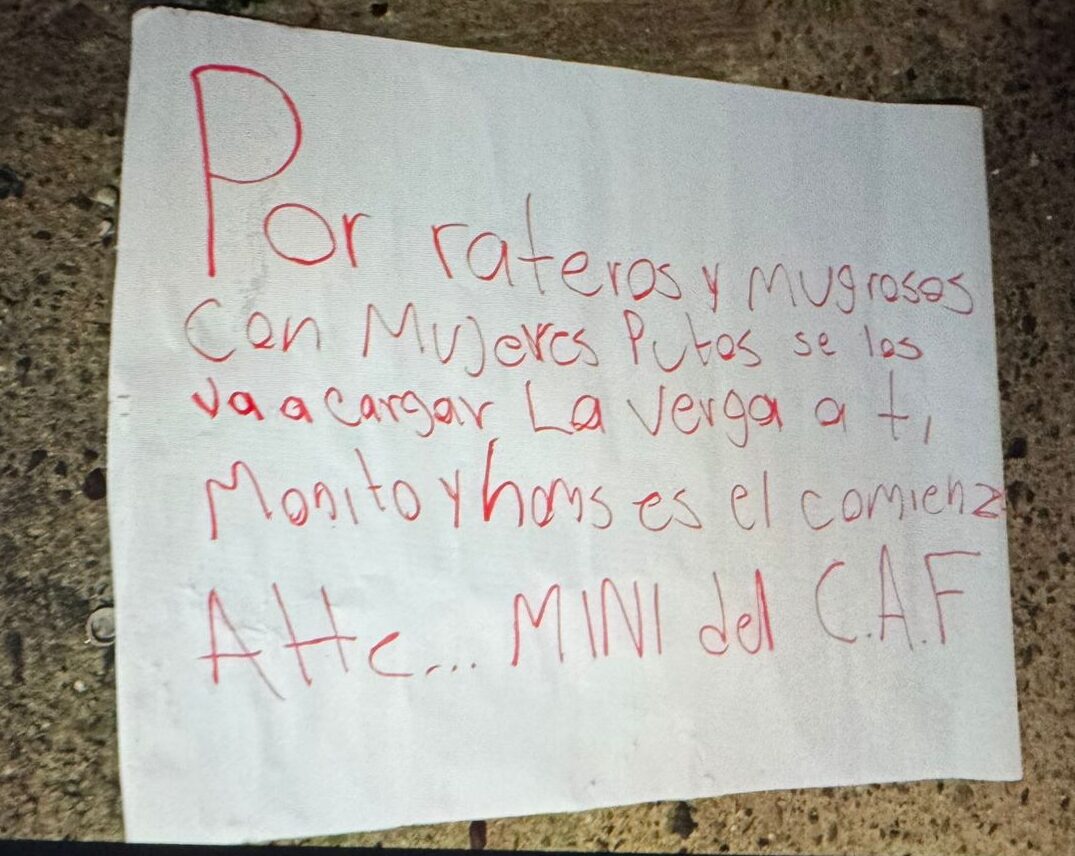 Por rateros y mugrosos
con Mujeres Putos se los
va a cargar La verga a ti
Monito y hans es el comienz
Atte... MINI del C.A.F